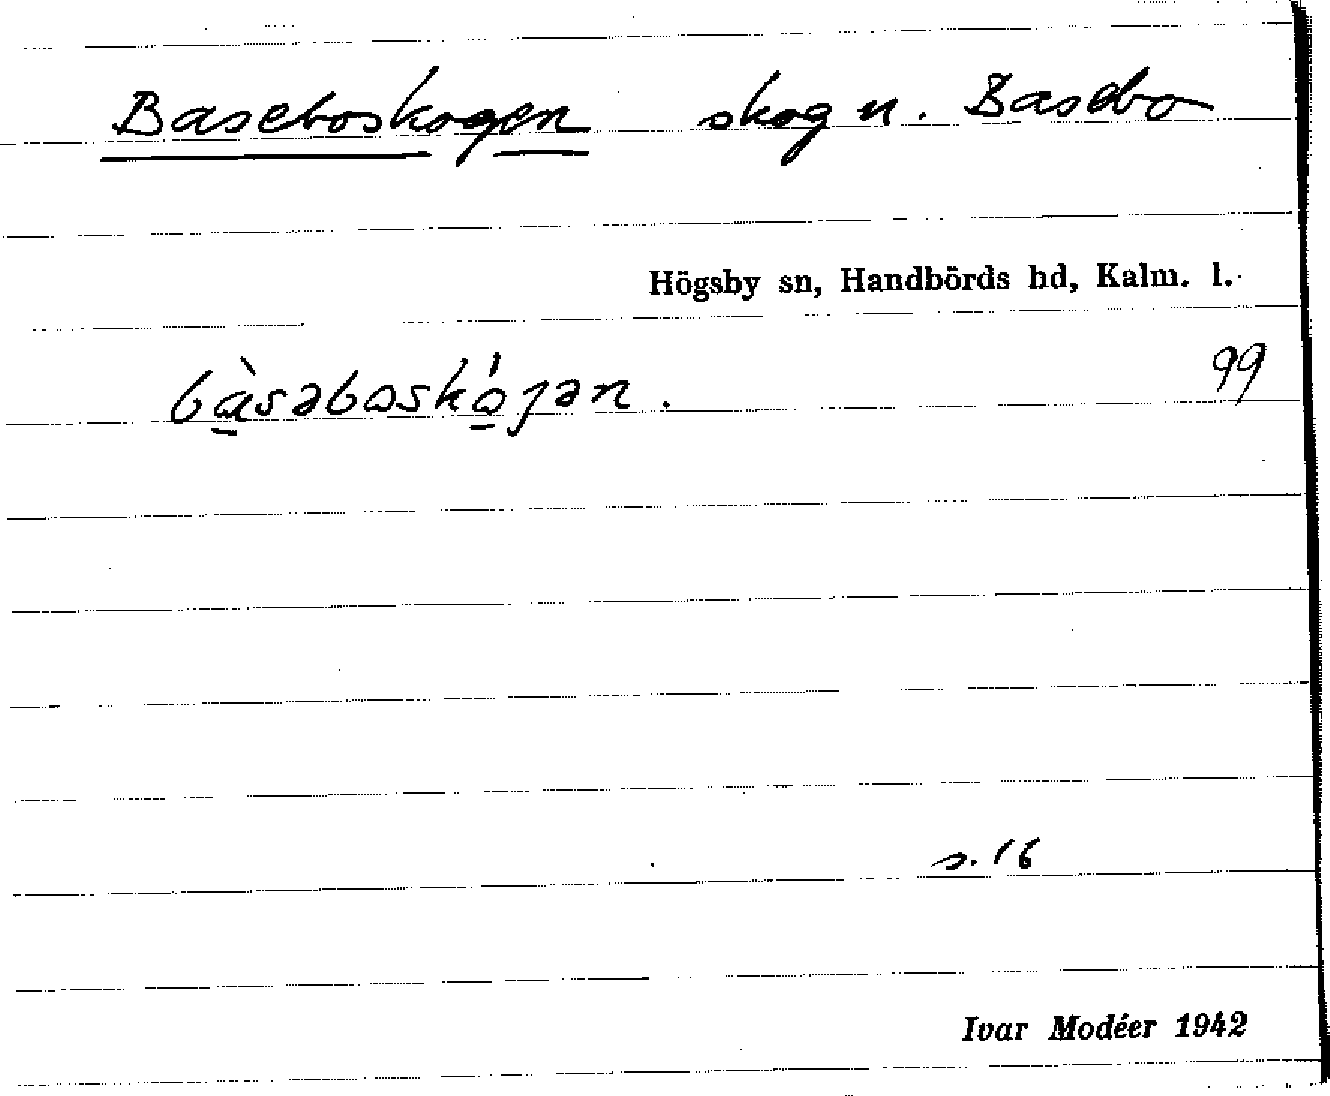 Baseboskogen skog n. Basebo
Högsby sn, Handbörds hd, Kalm. l.
bàsəboskóγən.
99
s. 16
Ivar Modéer 1942